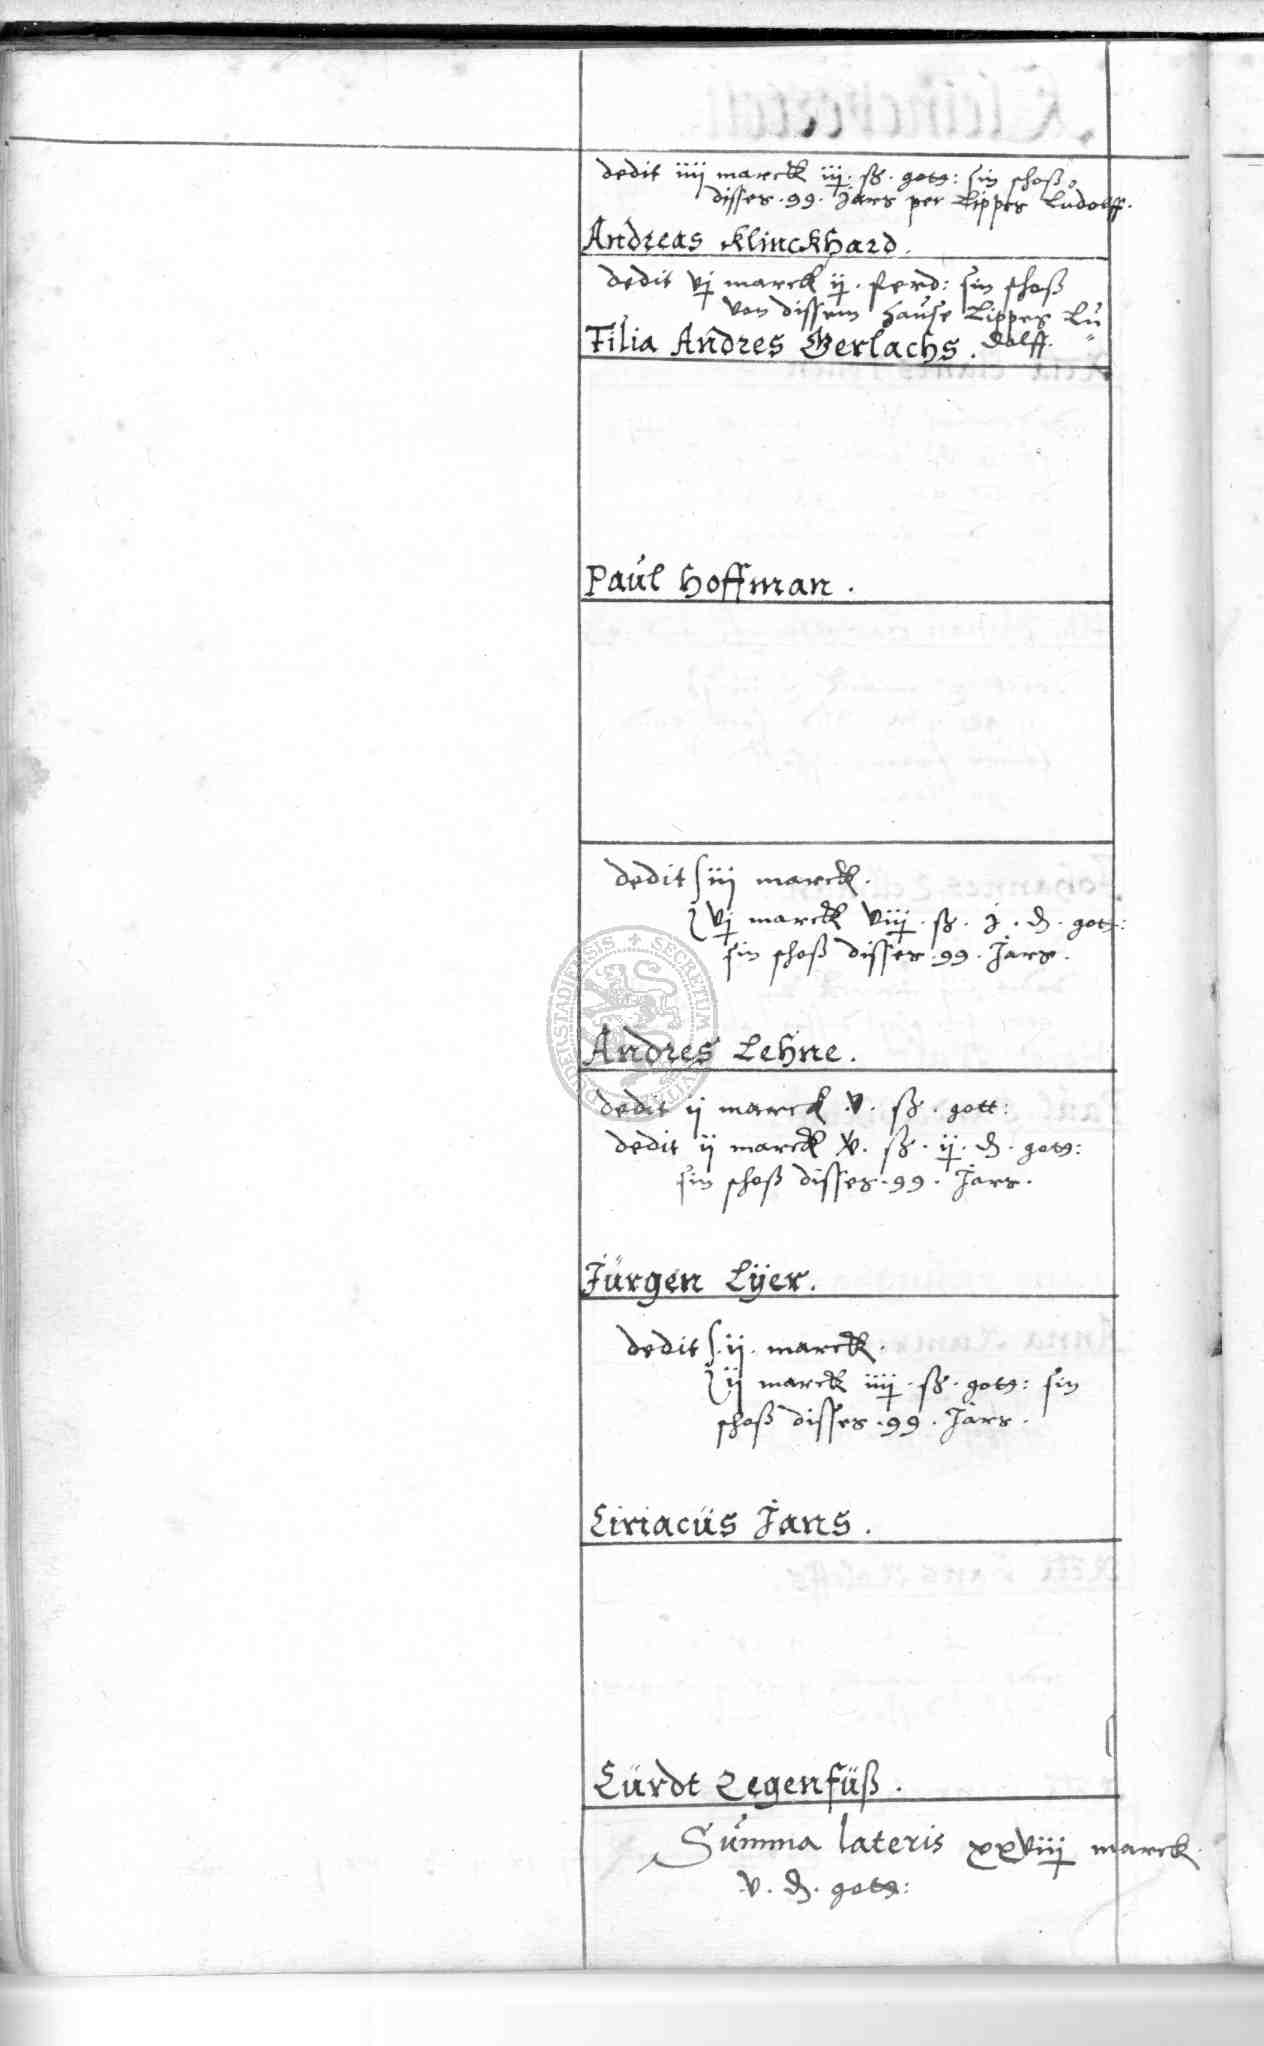 dedit iiij marck iij. ß. gots: sin schoß
disses .99. Jars per Lippes Ludolff.
Andreas Klinckhard.
dedit vj marck ij. ferd: sin schoß
von dissem Hause Lippes Lu
dolff.
Filia Andres Gerlachs.
Paul Hoffman.
dedit iij marck.
vj marck viij. ß. j. d. gots:
sin schoß disses .99. Jars.
Andres Lehne.
dedit ij marck .v. ß. gott:
dedit ij marck v. ß. ij. d. gots:
sin schoß disses .99. Jars.
Jürgen Lÿer.
dedit .ij. marck.
ij marck iiij. ß. gots: sin
schoß disses .99. Jars.
Ciriacus Jans.
Curdt Zegenfuß.
Summa lateris xxviij marck
v. d. gots: